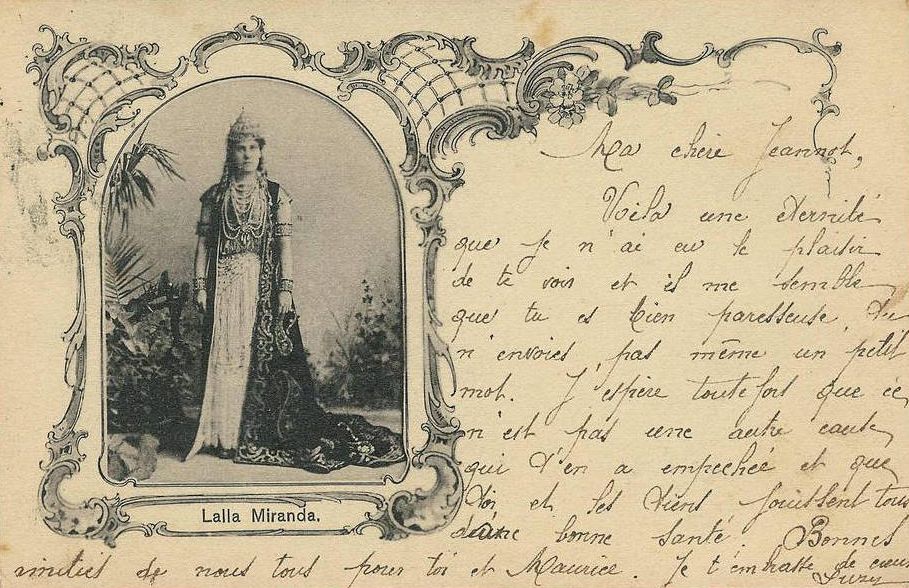 Ma chère Jeannot,
Voilà une éternité
que je n'ai eu le plaisir
de te voir et il me semble
que tu es bien paresseuse, tu
n'envoies pas même un petit
mot. J'espère toutefois que ce
n'est pas une autre cause
qui t'en a empechée et que
toi et les tiens jouissent tous
d'une bonne santé. Bonnes
amitiés de nous tous pour toi et Maurice. Je t'embrasse de cœur
Suzy
Lalla Miranda.